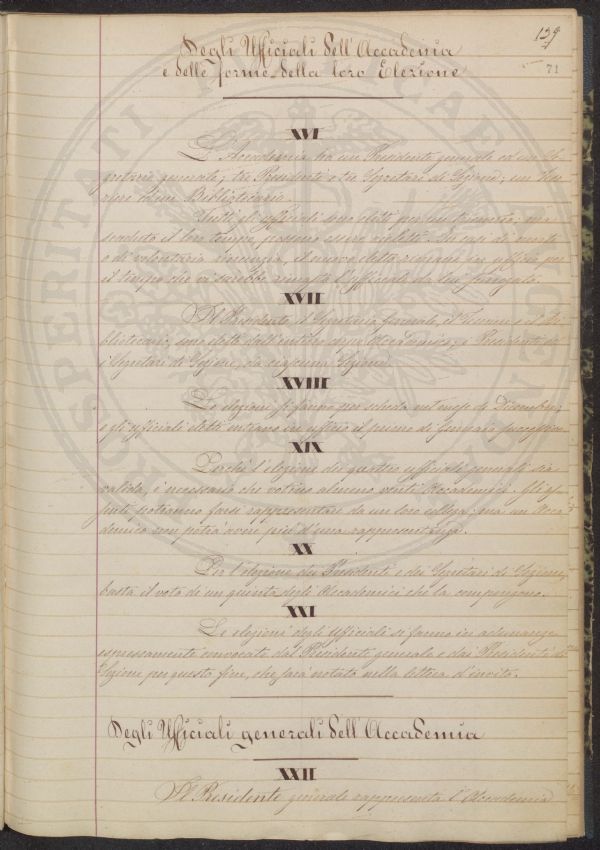 139
71
Degli Ufficiali dell'Accademia
e delle forme della loro Elezione
XVI
L'Accademia ha un Presidente generale ed un Se-
gretario generale, tre Presidenti e tre Segretari di Sezione, un Teso-
riere ed un Bibliotecario.
Tutti gli ufficiali sono eletti per un triennio, ma
scaduto il loro tempo, possono essere rieletti. In casi di morte
o di volontaria rinunzia, il nuovo eletto rimane in ufficio per
il tempo che vi sarebbe rimasto l'ufficiale da lui surrogato.
XVII
Il Presidente, il Segretario generale, il Tesoriere e il Bi-
bliotecario, sono eletti dall'intero corpo Accademico; i Presidenti ed
i Segretari di Sezione, da ciascuna Sezione.
XVIII
Le elezioni si fanno per scheda nel mese di Dicembre,
e gli ufficiali eletti entrano in ufficio il primo di Gennaio
XIX
Perchè l'elezione dei quattro ufficiali generali sia
valida, è necessario che votino almeno venti Accademici. Gli as-
senti potranno farsi rappresentare da un loro collega; ma un Acca-
demico non potrà avere più d'una rappresentanza.
XX
Per l'elezione dei Presidenti e dei Segretari di Sezione,
basta il voto di un quinto degli Accademici che la compongono.
XXI
Le elezioni degli Ufficiali si fanno in adunanze
espressamente convocate dal Presidente generale e dai Presidenti di
Sezione per questo fine, che sarà notato nella lettera d'invito.
Degli Ufficiali generali dell'Accademia
XXII
Il Presidente generale rappresenta l'Accademia